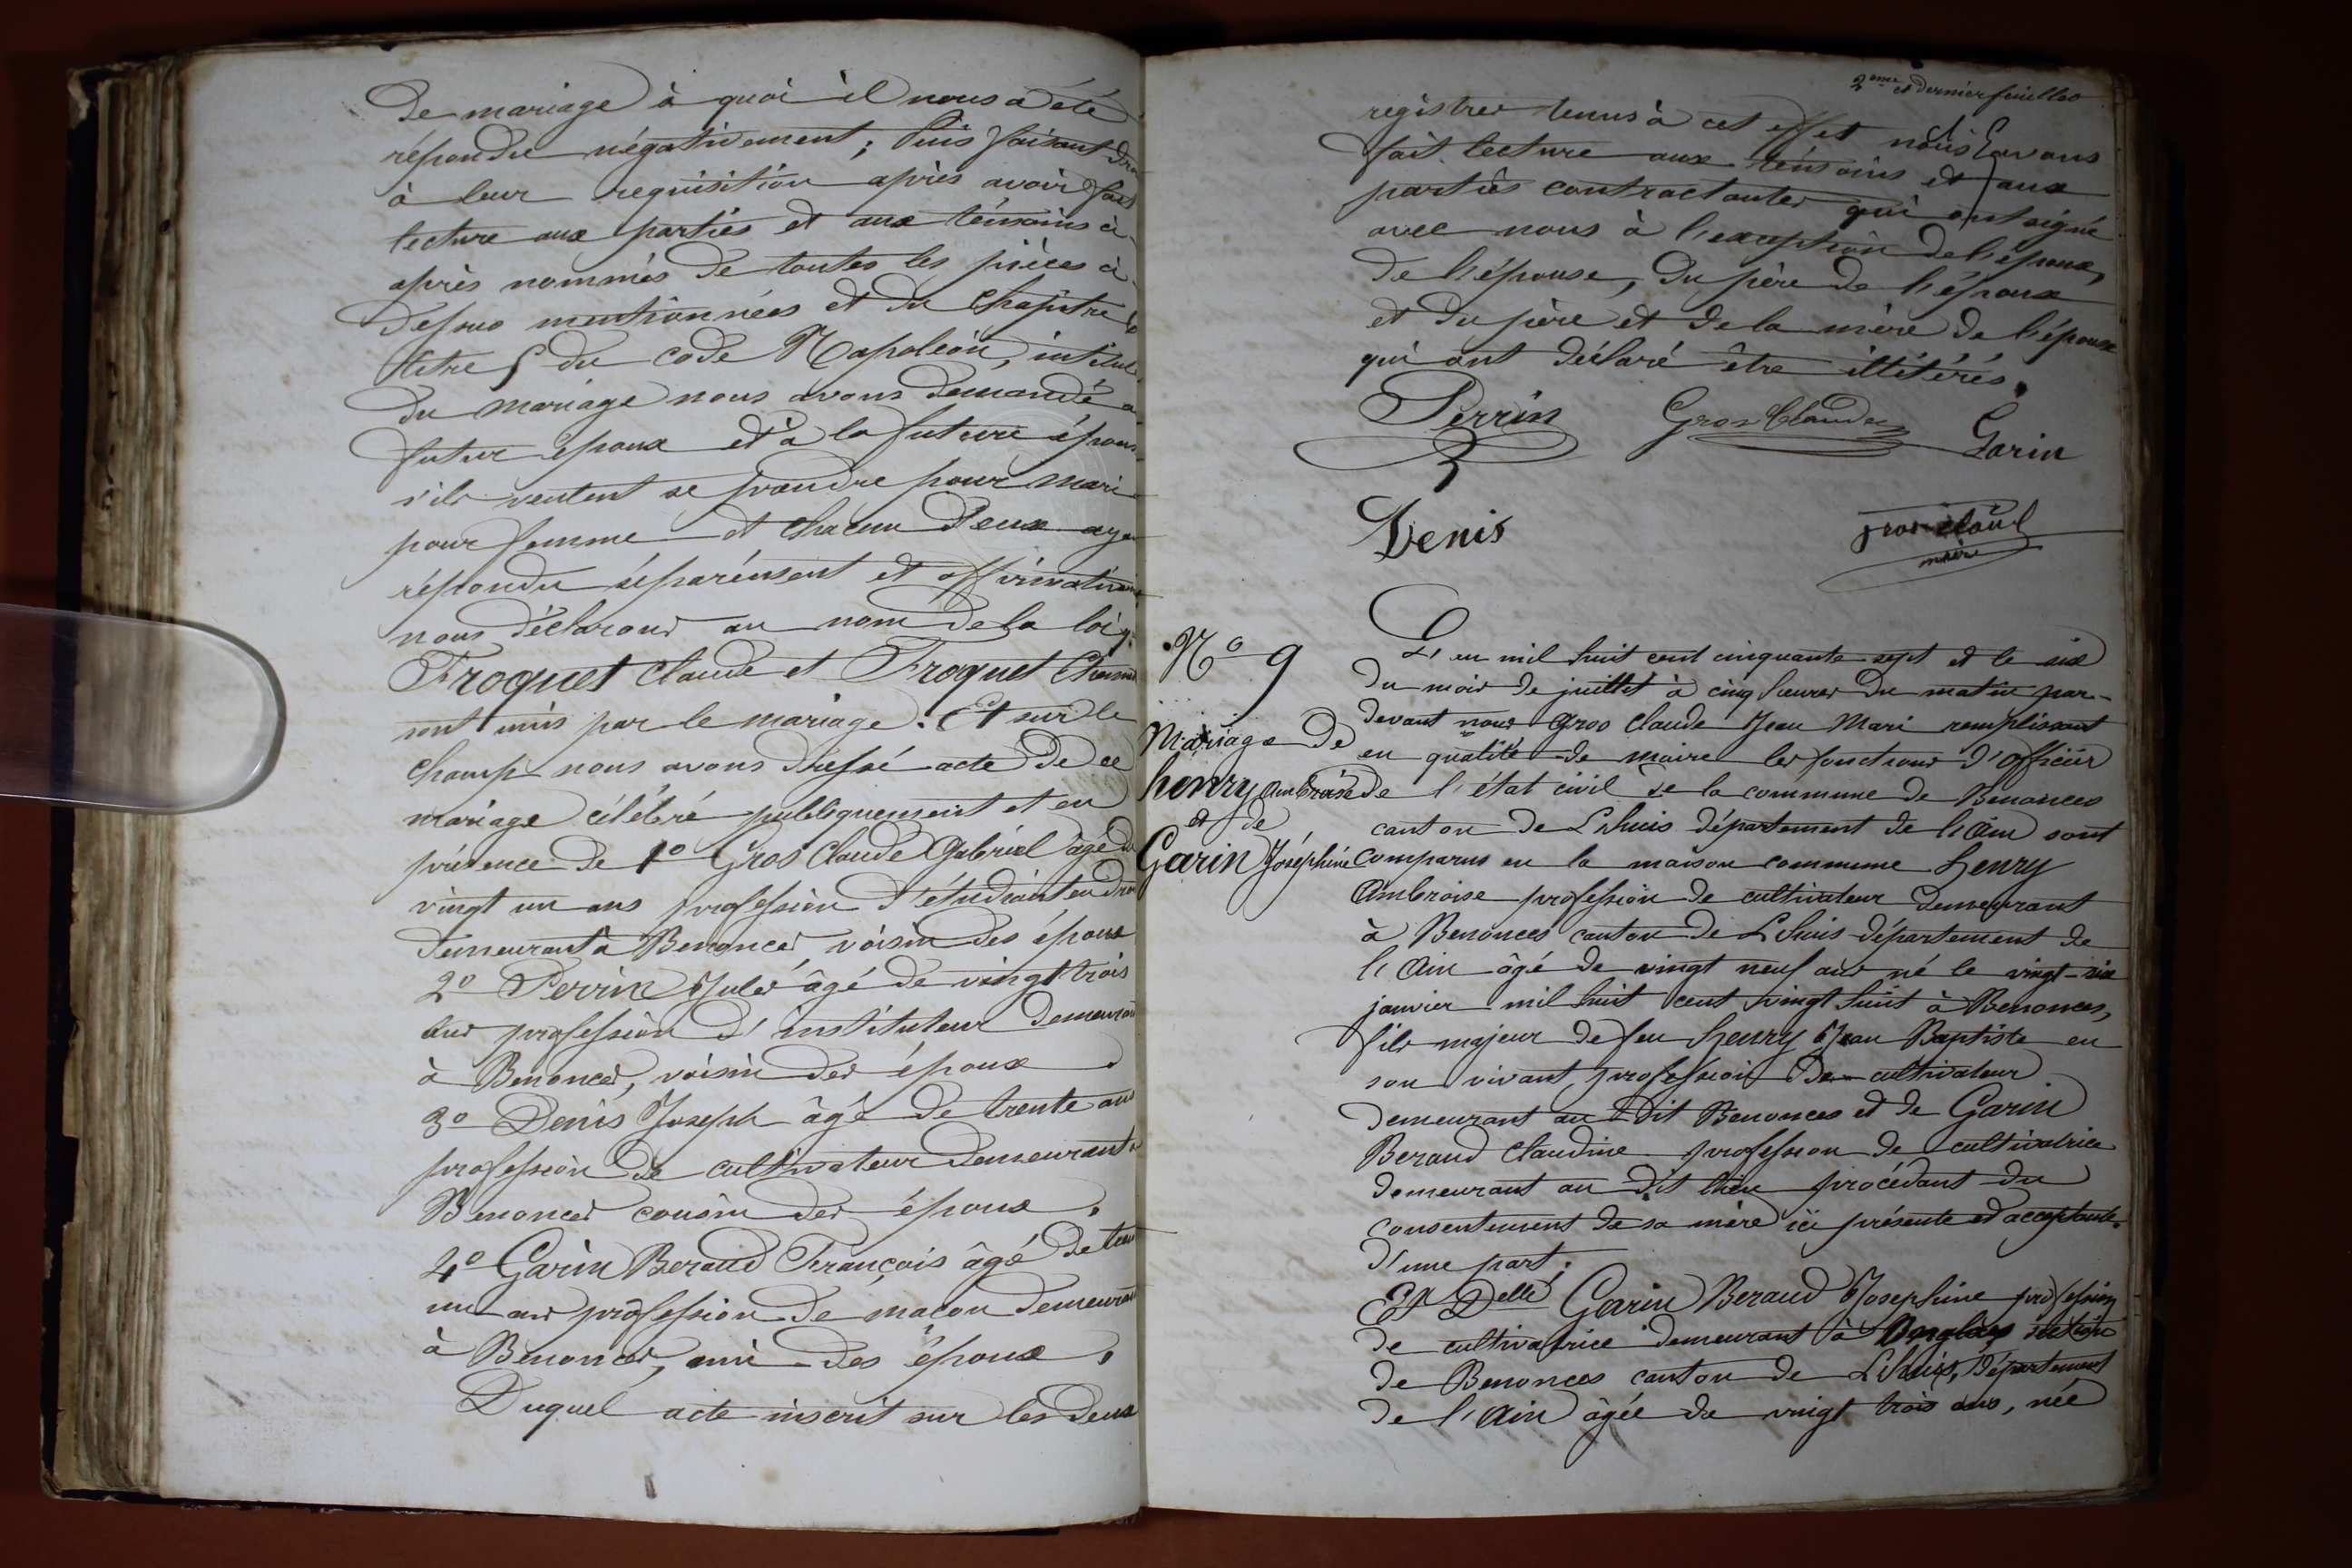 De mariage à quoi il nous a été
répondu négativement ; Puis faisant
à leur requisition après avoir fait
lecture aux parties et aux témoins ci-
après nommés de toutes les pièces ci-
dessus mentionnées et du Chapitre
titre 5 du code Napoléon, intitulé
Du mariage nous avons demandé
futur époux et à la future épouse
s'ils veulent se prendre pour mari
pour femme et chacun d'eux
répondu séparément et affirmativement
nous déclarons au nom de la loi
Froquet Claude et Froquet
sont unis par le mariage. Et sur le
champ nous avons dressé acte de ce
mariage célébré publiquement et en
présence de 1º Gros Claude Gabriel âgé de
vingt un ans profession d'étudiant en
demeurant à Benonces voisin des époux
2º Perrin Jules âgé de vingt trois
ans profession d'instituteur demeurant
à Benonces, voisin des époux
3º Denis Joseph âgé de trente ans
profession de cultivateur demeurant à
Benonces cousin des époux.
4º Garin Beraud François âgé de
un ans profession de maçon demeurant
à Benonces, ami des époux.
Duquel acte inscrit sur les deux
2eme et dernier feuilles
registres tenus à cet effet nous avons
fait lecture aux témoins et aux
parties contractantes qui ont signé
avec nous à l'exception de l'époux,
de l'épouse, du père de l'époux
et du père et de la mère de l'épouse
qui ont déclaré être illitérés.
Perrin Gros Claude Garin
Denis gros claude
maire
Nº 9
Mariage de
henry ambroise
et de
Garin Joséphine
L'en mil huit cent cinquante sept et le six
du mois de juillet à cinq heures du matin par-
devant nous Gros Claude Jean Mari remplissant
en qualité de maire les fonctions d'officier
de l'état civil de la commune de Benonces
canton de Lhuis département de l'Ain sont
comparus en la maison commune henry
Ambroise profession de cultivateur demeurant
à Benonces canton de Lhuis département de
l'Ain âgé de vingt neuf ans né le vingt-six
janvier mil huit cent vingt huit à Benonces,
fils majeur de feu henry Jean Baptiste en
son vivant, profession de cultivateur
demeurant au dit Benonces et de Garin
Beraud Claudine profession de cultivatrice
demeurant au dit lieu procédant du
consentement de sa mère ici présente et acceptante.
D'une part ;
Et Delle Garin Beraud Josephine profession
de cultivatrice demeurant à section
de Benonces canton de Lhuis, département
de l'Ain âgée de vingt trois ans, née